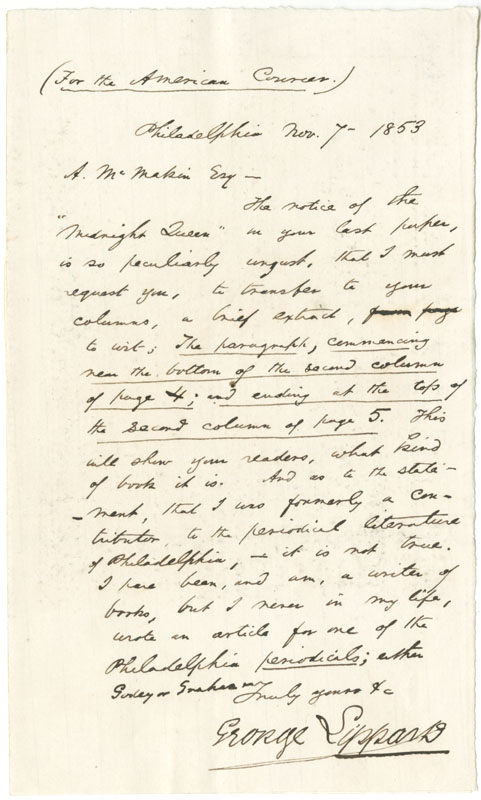 (For the American Courier.)
Philadelphia Nov. 7 – 1853
A. McMakin Esq —
The notice of the
"Midnight Queen" in your last paper,
is so peculiarly unjust, that I must
request you, to transfer to your
columns, a brief extract, from page
to wit; The paragraph, commencing
near the bottom of the second column
of page 4; and ending at the top of
the second column of page 5. This
will show your readers, what kind
of book it is. And as to the state-
-ment, that I was formerly a con-
tributor, to the periodical literature
of Philadelphia, – it is not true.
I have been, and am, a writer of
books, but I never in my life,
wrote an article for one of the
Philadelphia periodicals; either
Godey or Graham
Truly yours &c
George Lippard